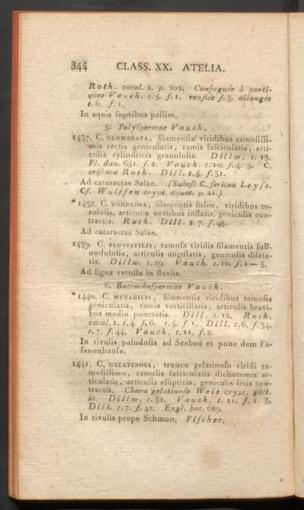 344 CLASS. XX. ATELIA.
Roth. catal. 2. p. 202. Conjuguée à porti-
ques Vauch. t. 5. f. 1. renflée f. 3. allongée
t. 6. f. 1.
In aquis segnibus passim.
5. Polyspermae Vauch.
1437. C. GLOMERATA, filamentis viridibus ramosissi-
mis rectis geniculatis, ramis fascicularis, arti-
culis cylindrinis granulosis. Dillw. t. 13.
Fl. dan. 651. f. 2. Vauch. t. 10. f. 4. 5. C.
cristata Roth. Dill. t. 5. f. 31.
Ad cataractas Salae. (Subest C. sericea Leyss.
Cf. Wulffen cryp. aquat. p. 21.)
*1438. C. TORULOSA, filamentis fuscis, viridibus to-
rulosis, articulis ovalibus inflatis, geniculis con-
tractis. Roth. Dill. t. 7. f. 48.
Ad cataractas Salae.
1439. C. FLUVIATILIS, ramosa viridis filamentis sub-
nodulosis, articulis angulatis, geniculis dilata-
tis. Dillw. t. 29. Vauch. t. 10. f. 1—3.
Ad ligna vetusta in fluviis.
6. Batrachospermae Vauch.
*1440. C. MUTABILIS, filamentis viridibus ramosis
geniculatis, ramis verticillatis, articulis brevi-
bus medio punctatis. Dill. t. 12. Roth.
catal. 1. t. 4. f. 6. t. 5. f. 1. Dill. t. 6. f. 34.
t. 7. f. 44. Vauch. t. 11. f. 2.
In rivulis paludosis ad Seeben et pone dem Fa-
sanenhause.
1441. C. GELATINOSA, trunco gelatinoso viridi ra-
mosissimo, ramulis fascicularis dichotomis ar-
ticularis, articulis ellipticis, geniculis setis con-
tractis. Chara gelatinosa Weis crypt. gött.
ic. Dillw. t. 32. Vauch. t. 11. f. 1. 3.
Dill. t. 7. f. 42. Engl. bot. 689.
In rivulis prope Schmon. Fischer.